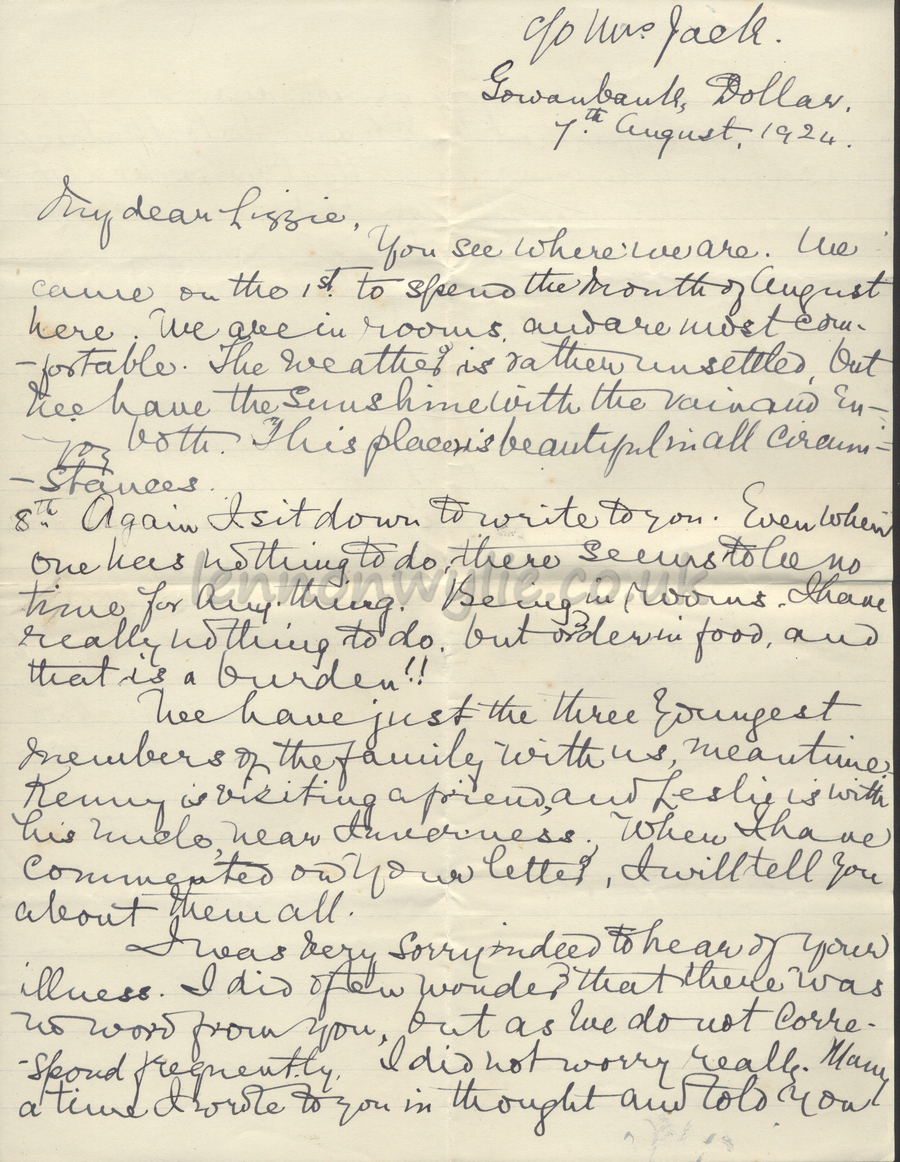 c/o Mrs Jack.
Gowanbank, Dollar.
7th August, 1924.
My dear Lizzie,
You see where we are. We
came on the 1st to spend the month of August
here. We are in rooms, and are most com-
-fortable. The weather is rather unsettled, but
we have the sunshine with the rain and en-
-joy both. This place is beautiful in all circum-
-stances.
8th Again I sit down to write to you. Even when
one has nothing to do, there seems to be no
time for anything. Being in rooms, I have
really nothing to do, but order in food, and
that is a burden!!
We have just the three youngest
members of the family with us, meantime.
Kenny is visiting a friend, and Leslie is with
his uncle, near Inverness. When I have
commented on your letter, I will tell you
about them all.
I was very sorry indeed to hear of your
illness. I did often wonder that there was
no word from you, but as we do not corre-
-spond frequently, I did not worry really. Many
a time I wrote to you in thought and told you
lennonwylie.co.uk